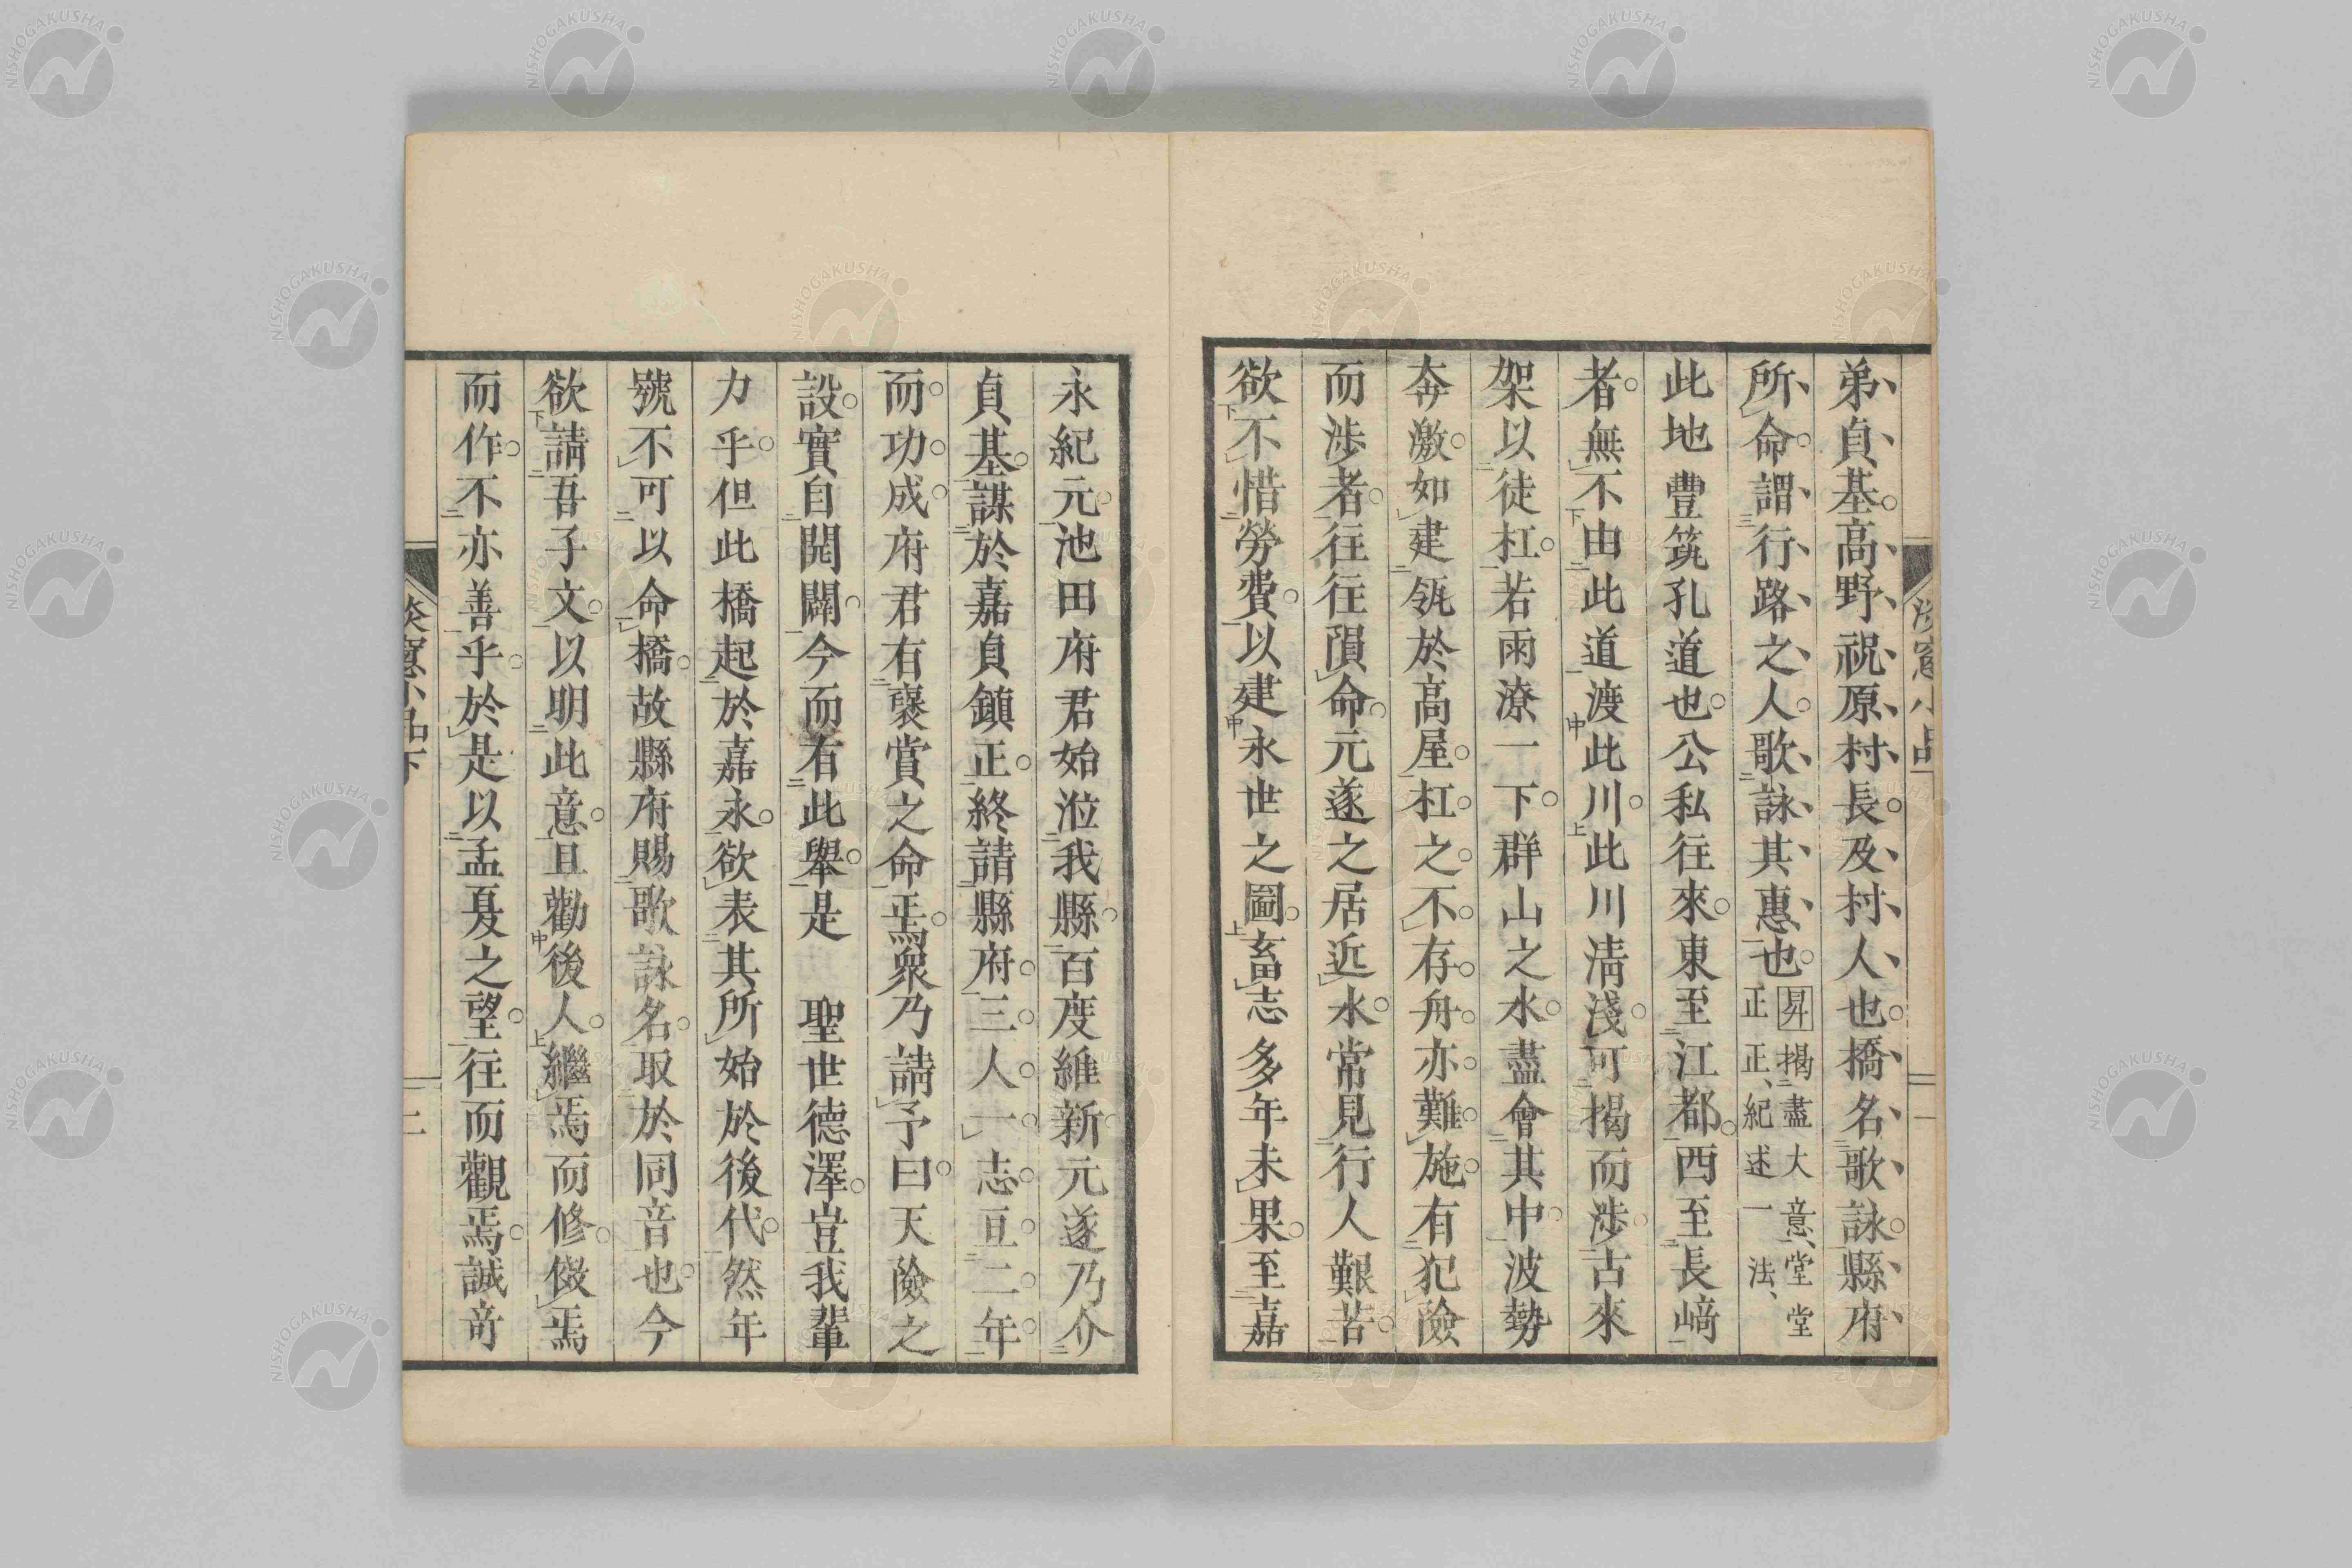 弟貞基高野祝原村長及村人也橋名歌詠縣府
所命謂行路之人歌詠其惠也昇揭盡大意堂堂正正紀述一法
此地豐筑孔道也公私往來東至江都西至長﨑
者無不由此道渡此川此川淸淺可揭而涉古來
架以徒杠若雨潦一下群山之水盡會其中波勢
奔激如建瓴於高屋杠之不存舟亦難施有犯險
而涉者往往隕命元遂之居近水常見行人艱苦
欲不惜勞費以建永世之圖畜志多年未果至嘉
永紀元池田府君始涖我縣百度維新元遂乃介
貞基謀於嘉貞鎭正終請縣府三人一志亘二年
而功成府君有褒賞之命焉衆乃請予曰天險之
設實自開闢今而有此擧是 聖世德澤豈我輩
力乎但此橋起於嘉永欲表其所始於後代然年
號不可以命橋故縣府賜歌詠名取於同音也今
欲請吾子文以明此意且勸後人繼焉而修復焉
而作不亦善乎於是以孟夏之望往而觀焉誠奇
淡窻小品下
二
NISHOGAKUSHA